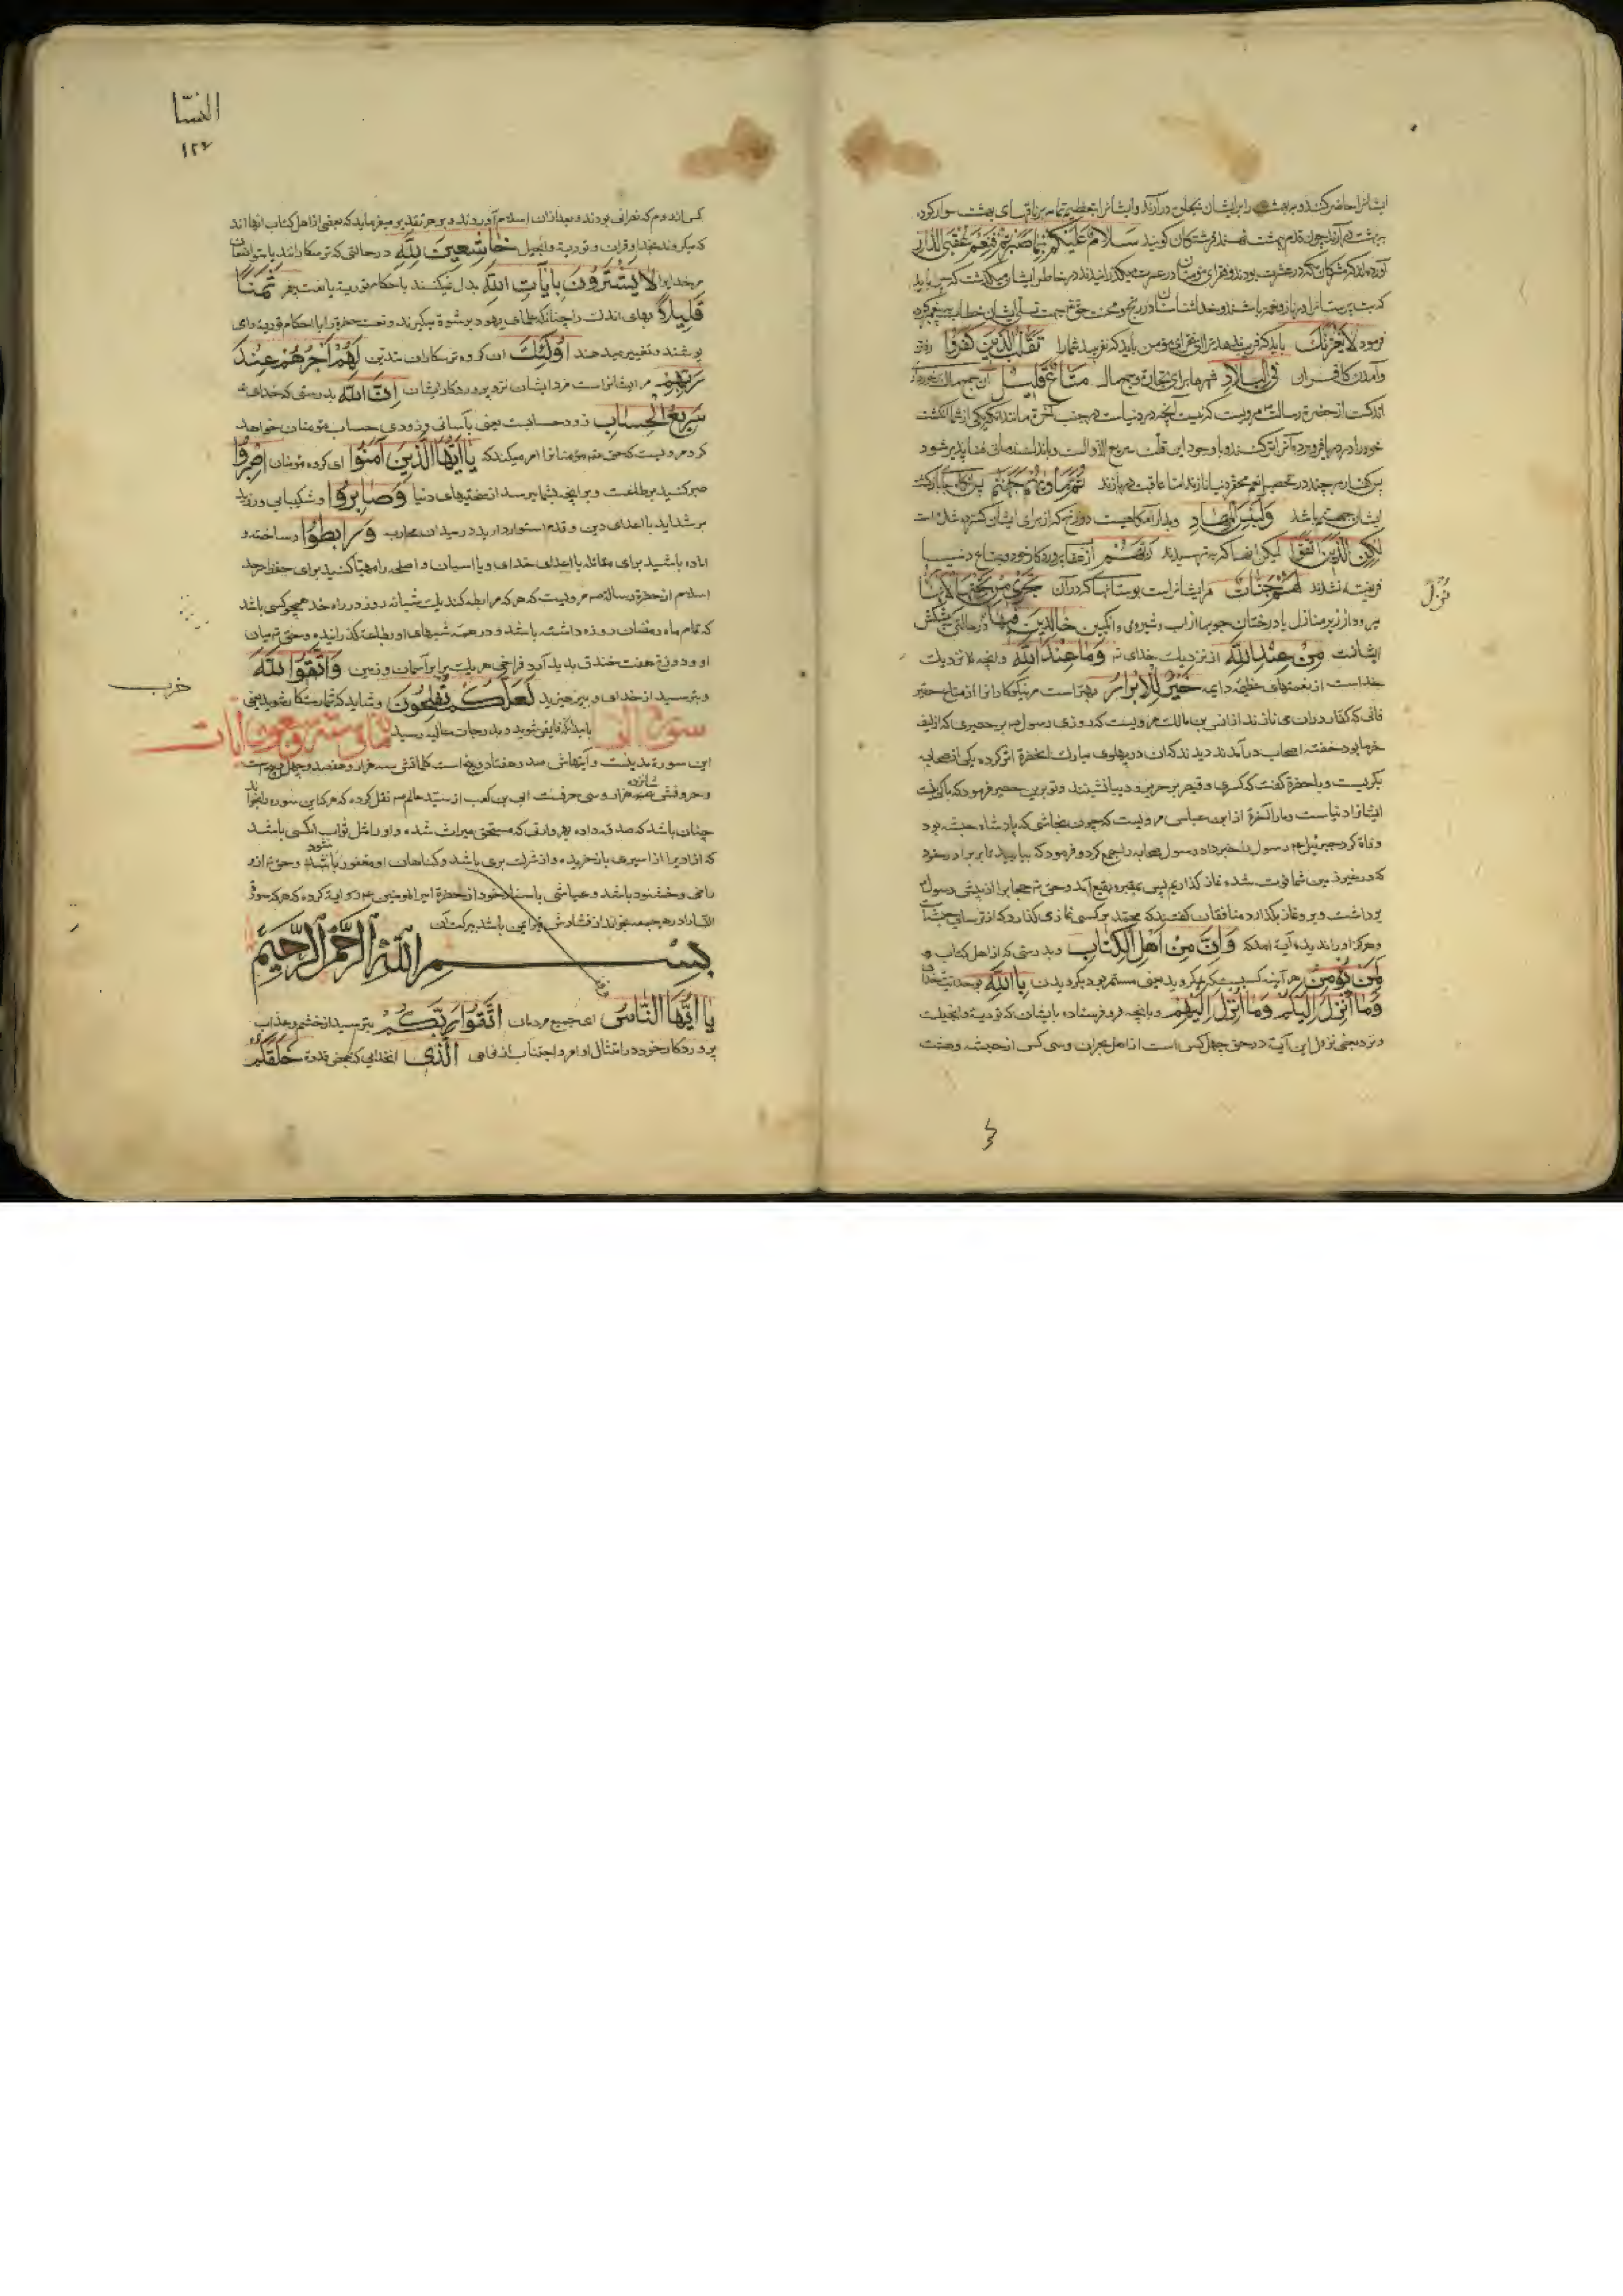 ایشانرا حاضر کنند و بهشت را بر ایشان تجلی درآرند و ایشانرا بتعظیم تمام بر ناقهای بهشت سوار کرده
به بهشت درآرند چون قدم در بهشت نهند فرشتگان گویند سَلامٌ عَلَیْکُمْ بِمَا صَبَرْتُمْ فَنِعْمَ عُقْبَی الدّارِ
آورده‌اند که مشرکان مکه در عشرت بودند و فقرای مؤمنان در عسرت میگذرانیدند در خاطر ایشان میگذشت که
فرمود لا یَغُرَّنَّکَ باید که فریب ندهد ترا تَقَلُّبُ الَّذینَ کَفَرُوا رفتن
وآمدن کافران فِی الْبِلادِ در شهرها برای تجارت و جمع مال مَتاعٌ قَلیلٌ
اندکست از حضرة رسالت مرویست که نیست آنچه در دنیاست در جنب آخرة مانند آنکه یکی از شما انگشت
خود را در دریا فرو برد و با وجود این قلت سریع الزوالست و باندک زمانی فنا پذیر شود
ثُمَّ مَأْواهُمْ جَهَنَّمُ پس آرامگاه بازگشت
ایشان جهنم باشد وَلَبِئْسَ الْمِهادُ و بد آرامگاهیست دوزخ که از برای ایشان گسترده شده است
لکِنِ الَّذینَ اتَّقَوْا لیکن آنها که بترسیدند رَبَّهُمْ از عذاب پروردگار خود و بمتاع دنیا
فریفته نشدند لَهُمْ جَنّاتٌ مر ایشانراست بوستانها که در آن تَجْری مِنْ تَحْتِهَا الْأَنْهارُ
میرود از زیر منازل یا درختان جویها از آب و شیر و می و انگبین خالِدینَ فیها در حالتی که پیشکش
نُزُلًا
ایشانست مِنْ عِنْدِ اللهِ از نزدیک خدای تع وَما عِنْدَ اللهِ و آنچه نزدیک
خداست از نعمتهای عظیمه دایمه خَیْرٌ لِلْأَبْرارِ بهتر است مر نیکوکارانرا از متاع حقیر
فانی که کفار در آن می نازند از انس بن مالک مرویست که روزی رسول ص بر حصیری که از لیف
خرما بود خفته اصحاب درآمدند دیدند که آن در پهلوی مبارک آنحضرة اثر کرده یکی از صحابه
بگریست و با حضرة گفت که کسری و قیصر بر حریر و دیبا نشینند و تو برین حصیر فرمود که
ایشانرا دنیاست و مارا آخرة از ابن عباس مرویست که چون نجاشی که پادشاه حبشه بود
وفاة کرد جبرئیل ع رسول را خبر داد رسول صحابه را جمع کرد و فرمود که بیایید تا بر برادر خود
که در غیر زمین شما فوت شده نماز گذاریم پس بمقبره بقیع آمد و حق تع حجابرا از پیش رسول
برداشت و بر او نماز بگذارد منافقان گفتند که محمد بر کسی نماز میگذارد که از ترسایان حبشه است
و هرگز او را ندیده آیة آمد که وَاِنَّ مِنْ اَهْلِ الْکِتابِ و بدرستی که از اهل کتاب
لَمَنْ یُؤْمِنُ هر آینه کسیست که میگرود یعنی مستمر بود بگرویدن بِاللهِ بوحدانیت خدا
وَما اُنْزِلَ اِلَیْکُمْ وَما اُنْزِلَ اِلَیْهِمْ و بآنچه فرو فرستاده بایشان که توریة و انجیلست
و نزد بعضی نزول این آیة در حق چهل کس است از اهل نجران و سی کس از حبشه و هشت
النسا
۱۲۶
کس از روم که نصرانی بودند و بعد از آن اسلام آوردند و بر هر تقدیر میفرماید که بعضی از اهل کتاب آنها اند
که میگروند بخدا و قرآن و توریة و انجیل خاشِعینَ لِلّٰهِ در حالتی که ترسکارانند یا متواضعان
مر خدایرا لا یَشْتَرُونَ بِآیاتِ اللهِ بدل نمیکنند باحکام توریة یا نعت پیغمبر ثَمَنًا
قَلیلًا بهای اندک را چنانکه علمای یهود برشوة میگیرند و نعت حضرة را با احکام توریة می
پوشند و تغییر میدهند اُولٰئِکَ آن گروه ترسکاران متدین لَهُمْ اَجْرُهُمْ عِنْدَ
رَبِّهِمْ مر ایشانراست مزد ایشان نزد پروردگار ایشان اِنَّ اللهَ بدرستی که خدای تع
سَریعُ الْحِسابِ زود حسابست یعنی بآسانی و زودی حساب مؤمنان خواهد
کرد مرویست که حق تع مؤمنانرا امر میکند که یا اَیُّهَا الَّذینَ آمَنُوا ای گروه مؤمنان اصْبِرُوا
صبر کنید بر طاعت و بر آنچه بشما برسد از سختیهای دنیا وَصابِرُوا و شکیبایی ورزید
بر شداید با اعدای دین و قدم استوار دارید در میدان محارب وَرابِطُوا و ساخته و
آماده باشید برای مقاتله با اعدای خدای و با اسبان و اصلی را مهیا کنید برای حفظ حد
اسلام از حضرة رسالة مرویست که هر که مرابطه کند یک شبانه روز در راه خدا همچو کسی باشد
که تمام ماه رمضان روزه داشته باشد و در همه شبهای او بطاعت گذرانیده و حق تع میان
او و دوزخ هفت خندق پدید آرد فراخی هر یک برابر آسمان و زمین وَاتَّقُوا اللهَ
و بترسید از خدای و بپرهیزید لَعَلَّکُمْ تُفْلِحُونَ و شاید که شما رستگار شوید یعنی
حزب
سورة النسا بابدیّة فایض شوید و بدرجات عالیه رسید مائة وستة وسبعون آیات
این سورة مدینست و آیتهاش صد و هفتاد و پنج است کلماتش سه هزار و هفصد و چهل و پنج است
و حروفش شانزده هزار و سی حرفست ابی بن کعب از سید عالم ص نقل کرده که هر که این سوره بخواند
چنان باشد که صدقه داده بهر وارثی که مستحق میراث شده و او را مثل ثواب آنکسی باشد
که آزادیرا از اسیری باز خریده و از شرک بری باشد و گناهان او مغفور باشد و حق تع ازو
راضی و خشنود باشد و عیاشی باسناد خود از حضرة امیر المؤمنین ع روایة کرده که هر که سورة
النساء را در هر جمعه بخواند از فشارش قبر ایمن باشد ببرکت آن
بِسْمِ اللهِ الرَّحْمٰنِ الرَّحیمِ
یا اَیُّهَا النّاسُ ای جمیع مردمان اتَّقُوا رَبَّکُمُ بترسید از خشم و عذاب
پروردگار خود در امتثال اوامر و اجتناب از نواهی الَّذی آنخدایی که بمحض قدرة خَلَقَکُمْ